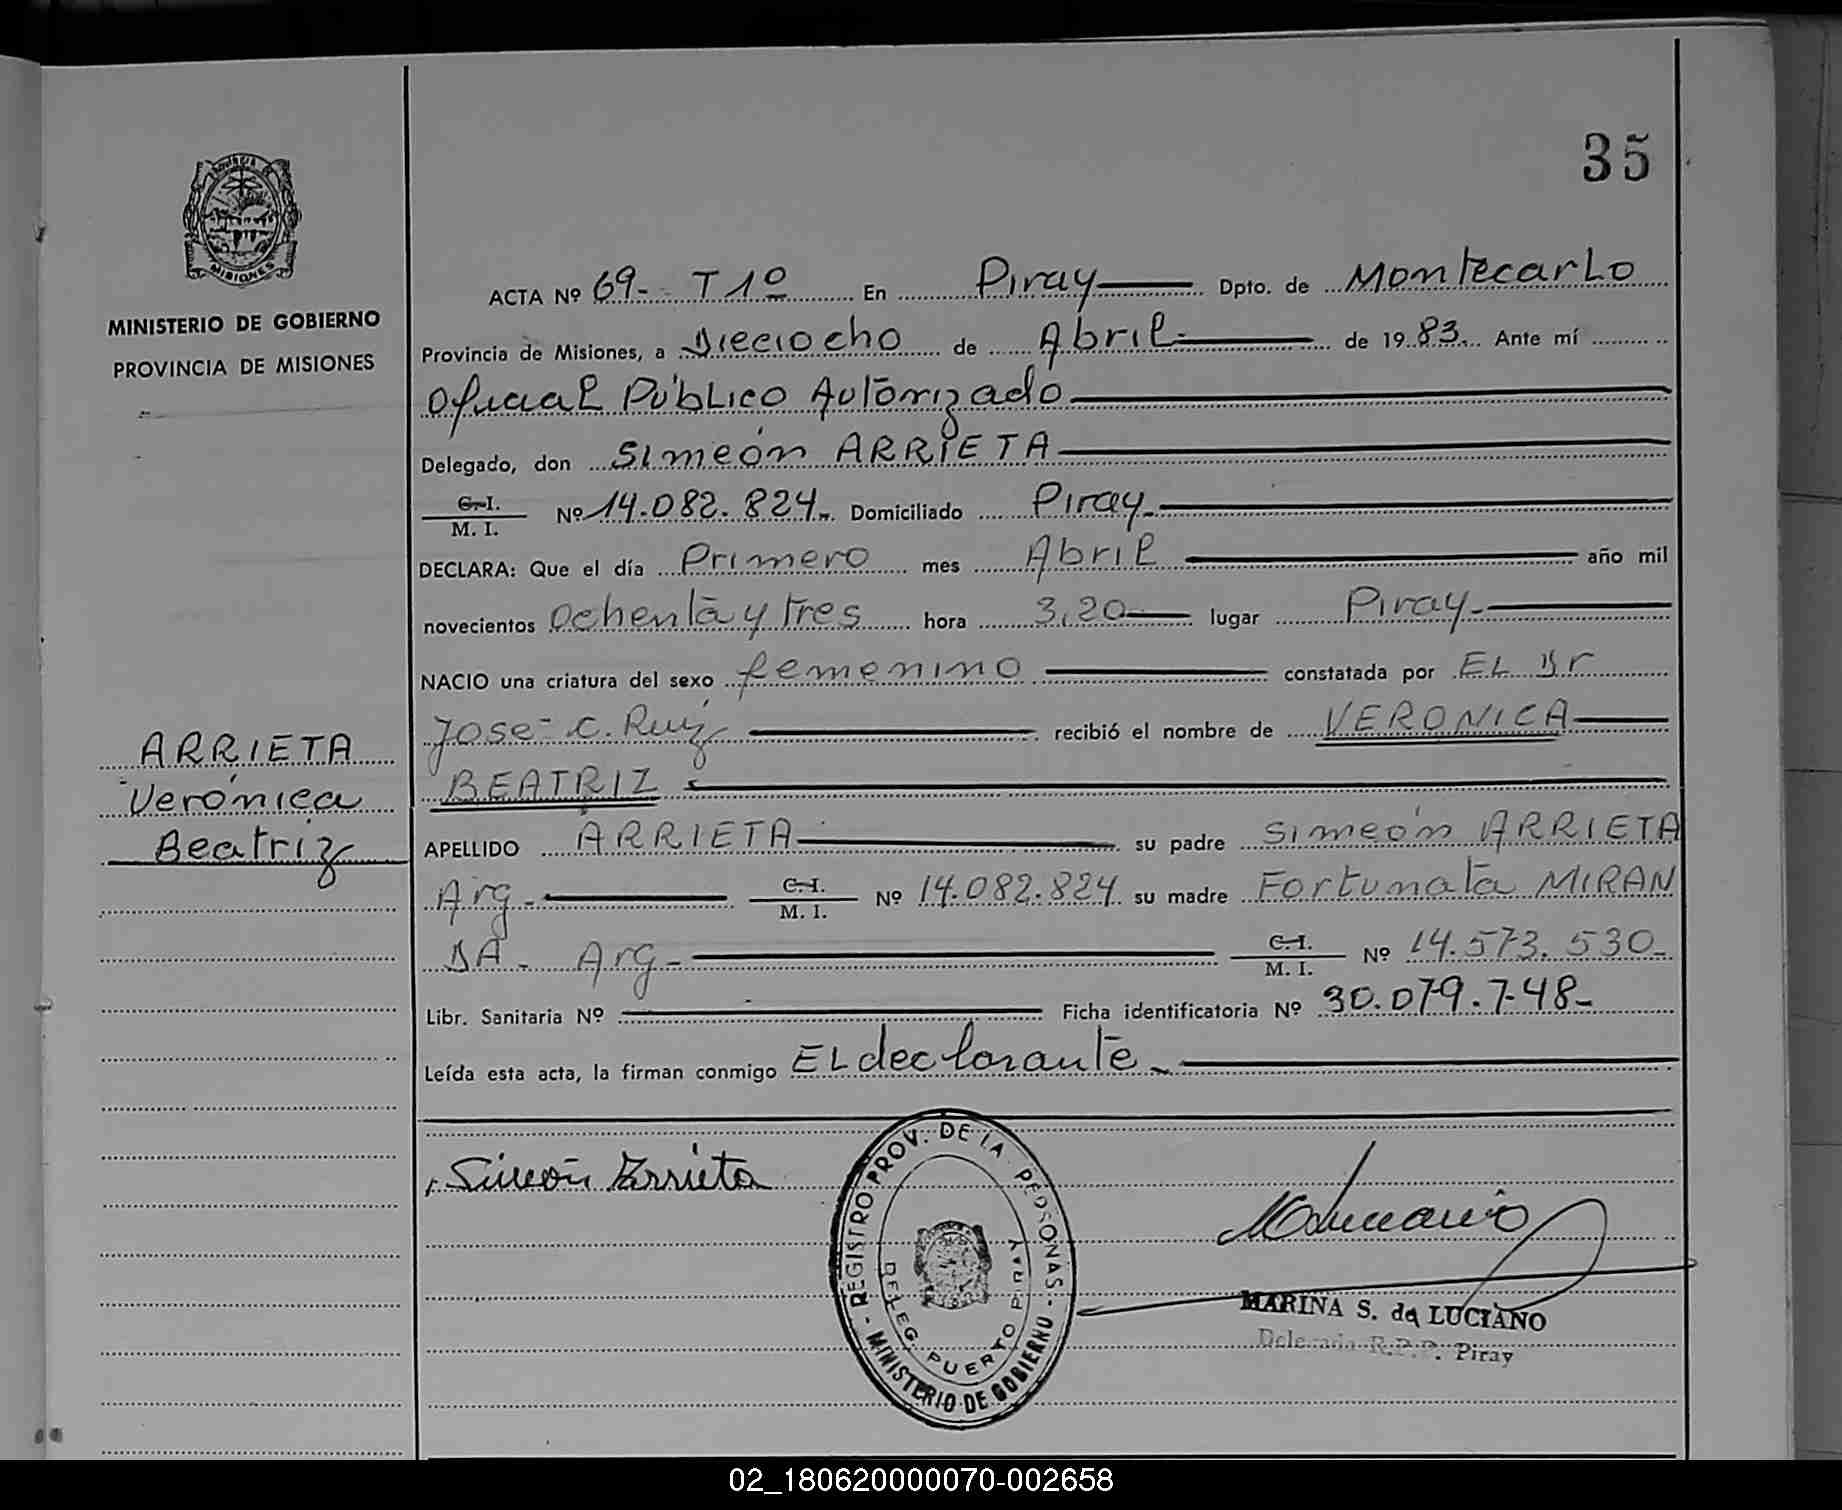 35
PROVINCIA DE
MISIONES
MINISTERIO DE GOBIERNO
PROVINCIA DE MISIONES
ACTA Nº 69- T 1º En Piray Dpto. de Montecarlo
Provincia de Misiones, a Dieciocho de Abril de 1983. Ante mí
Oficial Público Autorizado
Delegado, don Simeón ARRIETA
C.I.
M. I. Nº 14.082.824- Domiciliado Piray-
DECLARA: Que el día Primero mes Abril año mil
novecientos Ochenta y tres hora 3,20 lugar Piray-
NACIO una criatura del sexo femenino constatada por EL Dr
Jose C. Ruiz recibió el nombre de VERONICA
BEATRIZ
ARRIETA
Verónica
Beatriz
APELLIDO ARRIETA su padre Simeón ARRIETA
Arg- C.I.
M. I. Nº 14.082.824 su madre Fortunata MIRAN
DA- Arg- C.I.
M. I. Nº 14.573.530-
Libr. Sanitaria Nº Ficha identificatoria Nº 30.079.748-
Leída esta acta, la firman conmigo EL declarante-
Simeón Arrieta
REGISTRO PROV. DE LA PERSONAS - MINISTERIO DE GOBIERNO -
DELEG. PUERTO PIRAY
MARINA S. de LUCIANO
Delegada R.P.P. Piray
02_180620000070-002658